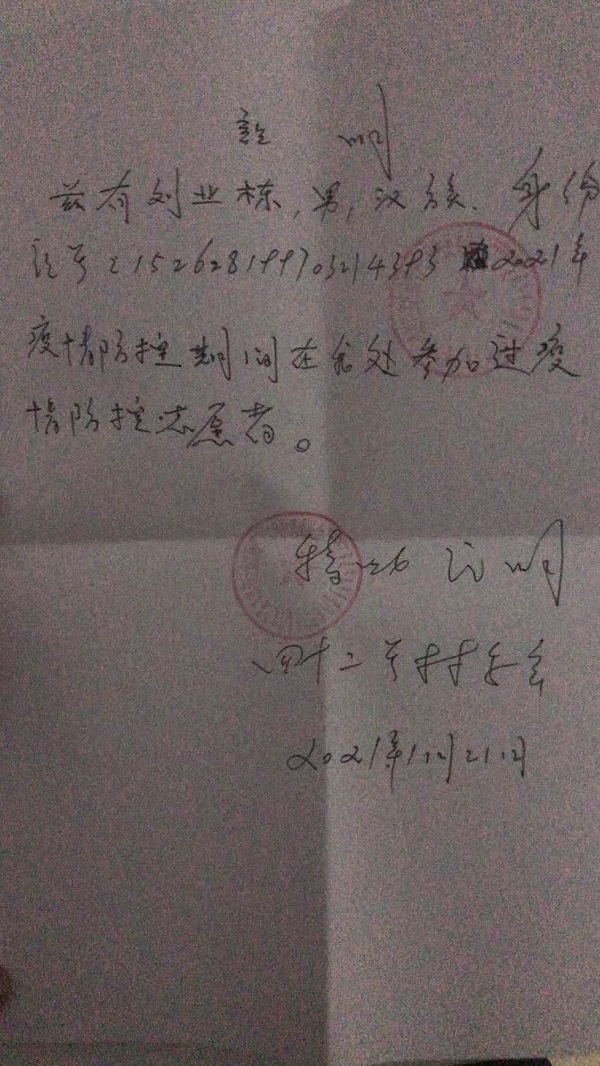 证 明
兹有刘业栋，男，汉族，身份
证号：152628199703214393 2021年
疫情防控期间在我处参加过疫
情防控志愿者。
特此证明
四十二号村村委会
2021年11月21日